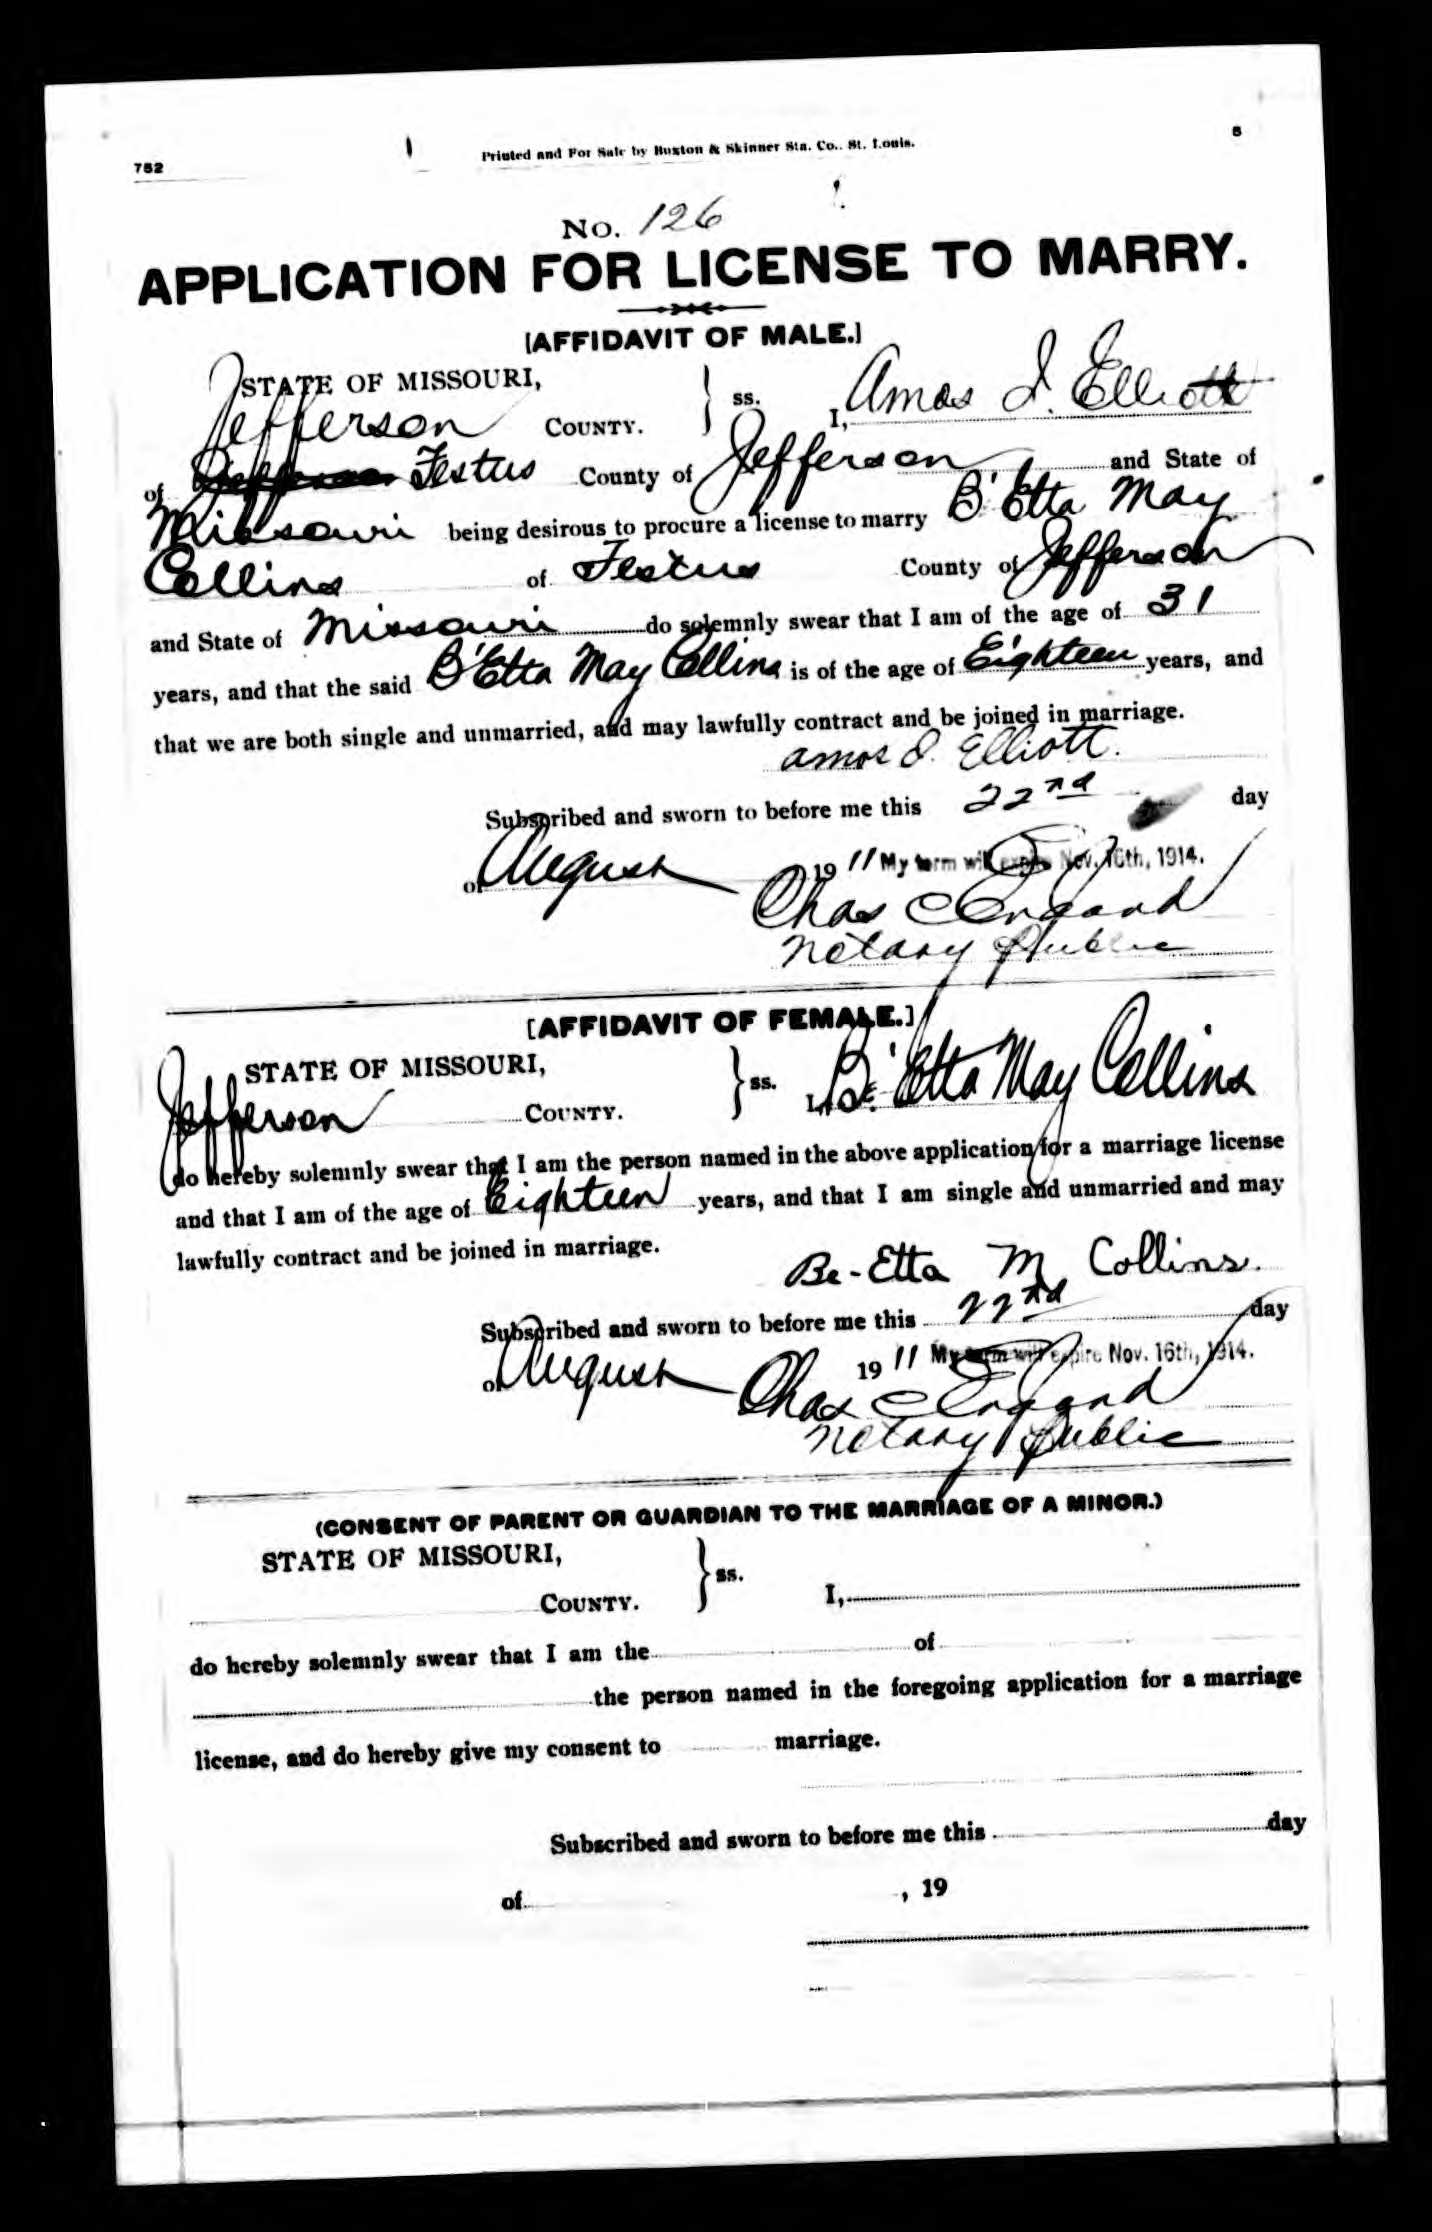 752
Printed and For Sale by Buxton & Skinner Sta. Co., St. Louis.
5
No. 126
APPLICATION FOR LICENSE TO MARRY.
[AFFIDAVIT OF MALE.]
STATE OF MISSOURI,
Jefferson COUNTY. } ss. I, Amos I. Elliott
of Jefferson Festus County of Jefferson and State of
Missouri being desirous to procure a license to marry B'Etta May
Collins of Festus County of Jefferson
and State of Missouri do solemnly swear that I am of the age of 31
years, and that the said B'Etta May Collins is of the age of Eighteen years, and
that we are both single and unmarried, and may lawfully contract and be joined in marriage.
Amos I. Elliott.
Subscribed and sworn to before me this 22nd day
of August 1911 My term will expire Nov. 16th, 1914.
Chas
Notary Public
[AFFIDAVIT OF FEMALE.]
STATE OF MISSOURI,
Jefferson COUNTY. } ss. I, Be'Etta May Collins
do hereby solemnly swear that I am the person named in the above application for a marriage license
and that I am of the age of Eighteen years, and that I am single and unmarried and may
lawfully contract and be joined in marriage.
Be-Etta M Collins.
Subscribed and sworn to before me this 22nd day
of August 1911 My term will expire Nov. 16th, 1914.
Chas
Notary Public
(CONSENT OF PARENT OR GUARDIAN TO THE MARRIAGE OF A MINOR.)
STATE OF MISSOURI,
COUNTY. } ss. I,
do hereby solemnly swear that I am the of
the person named in the foregoing application for a marriage
license, and do hereby give my consent to marriage.
Subscribed and sworn to before me this day
of , 19